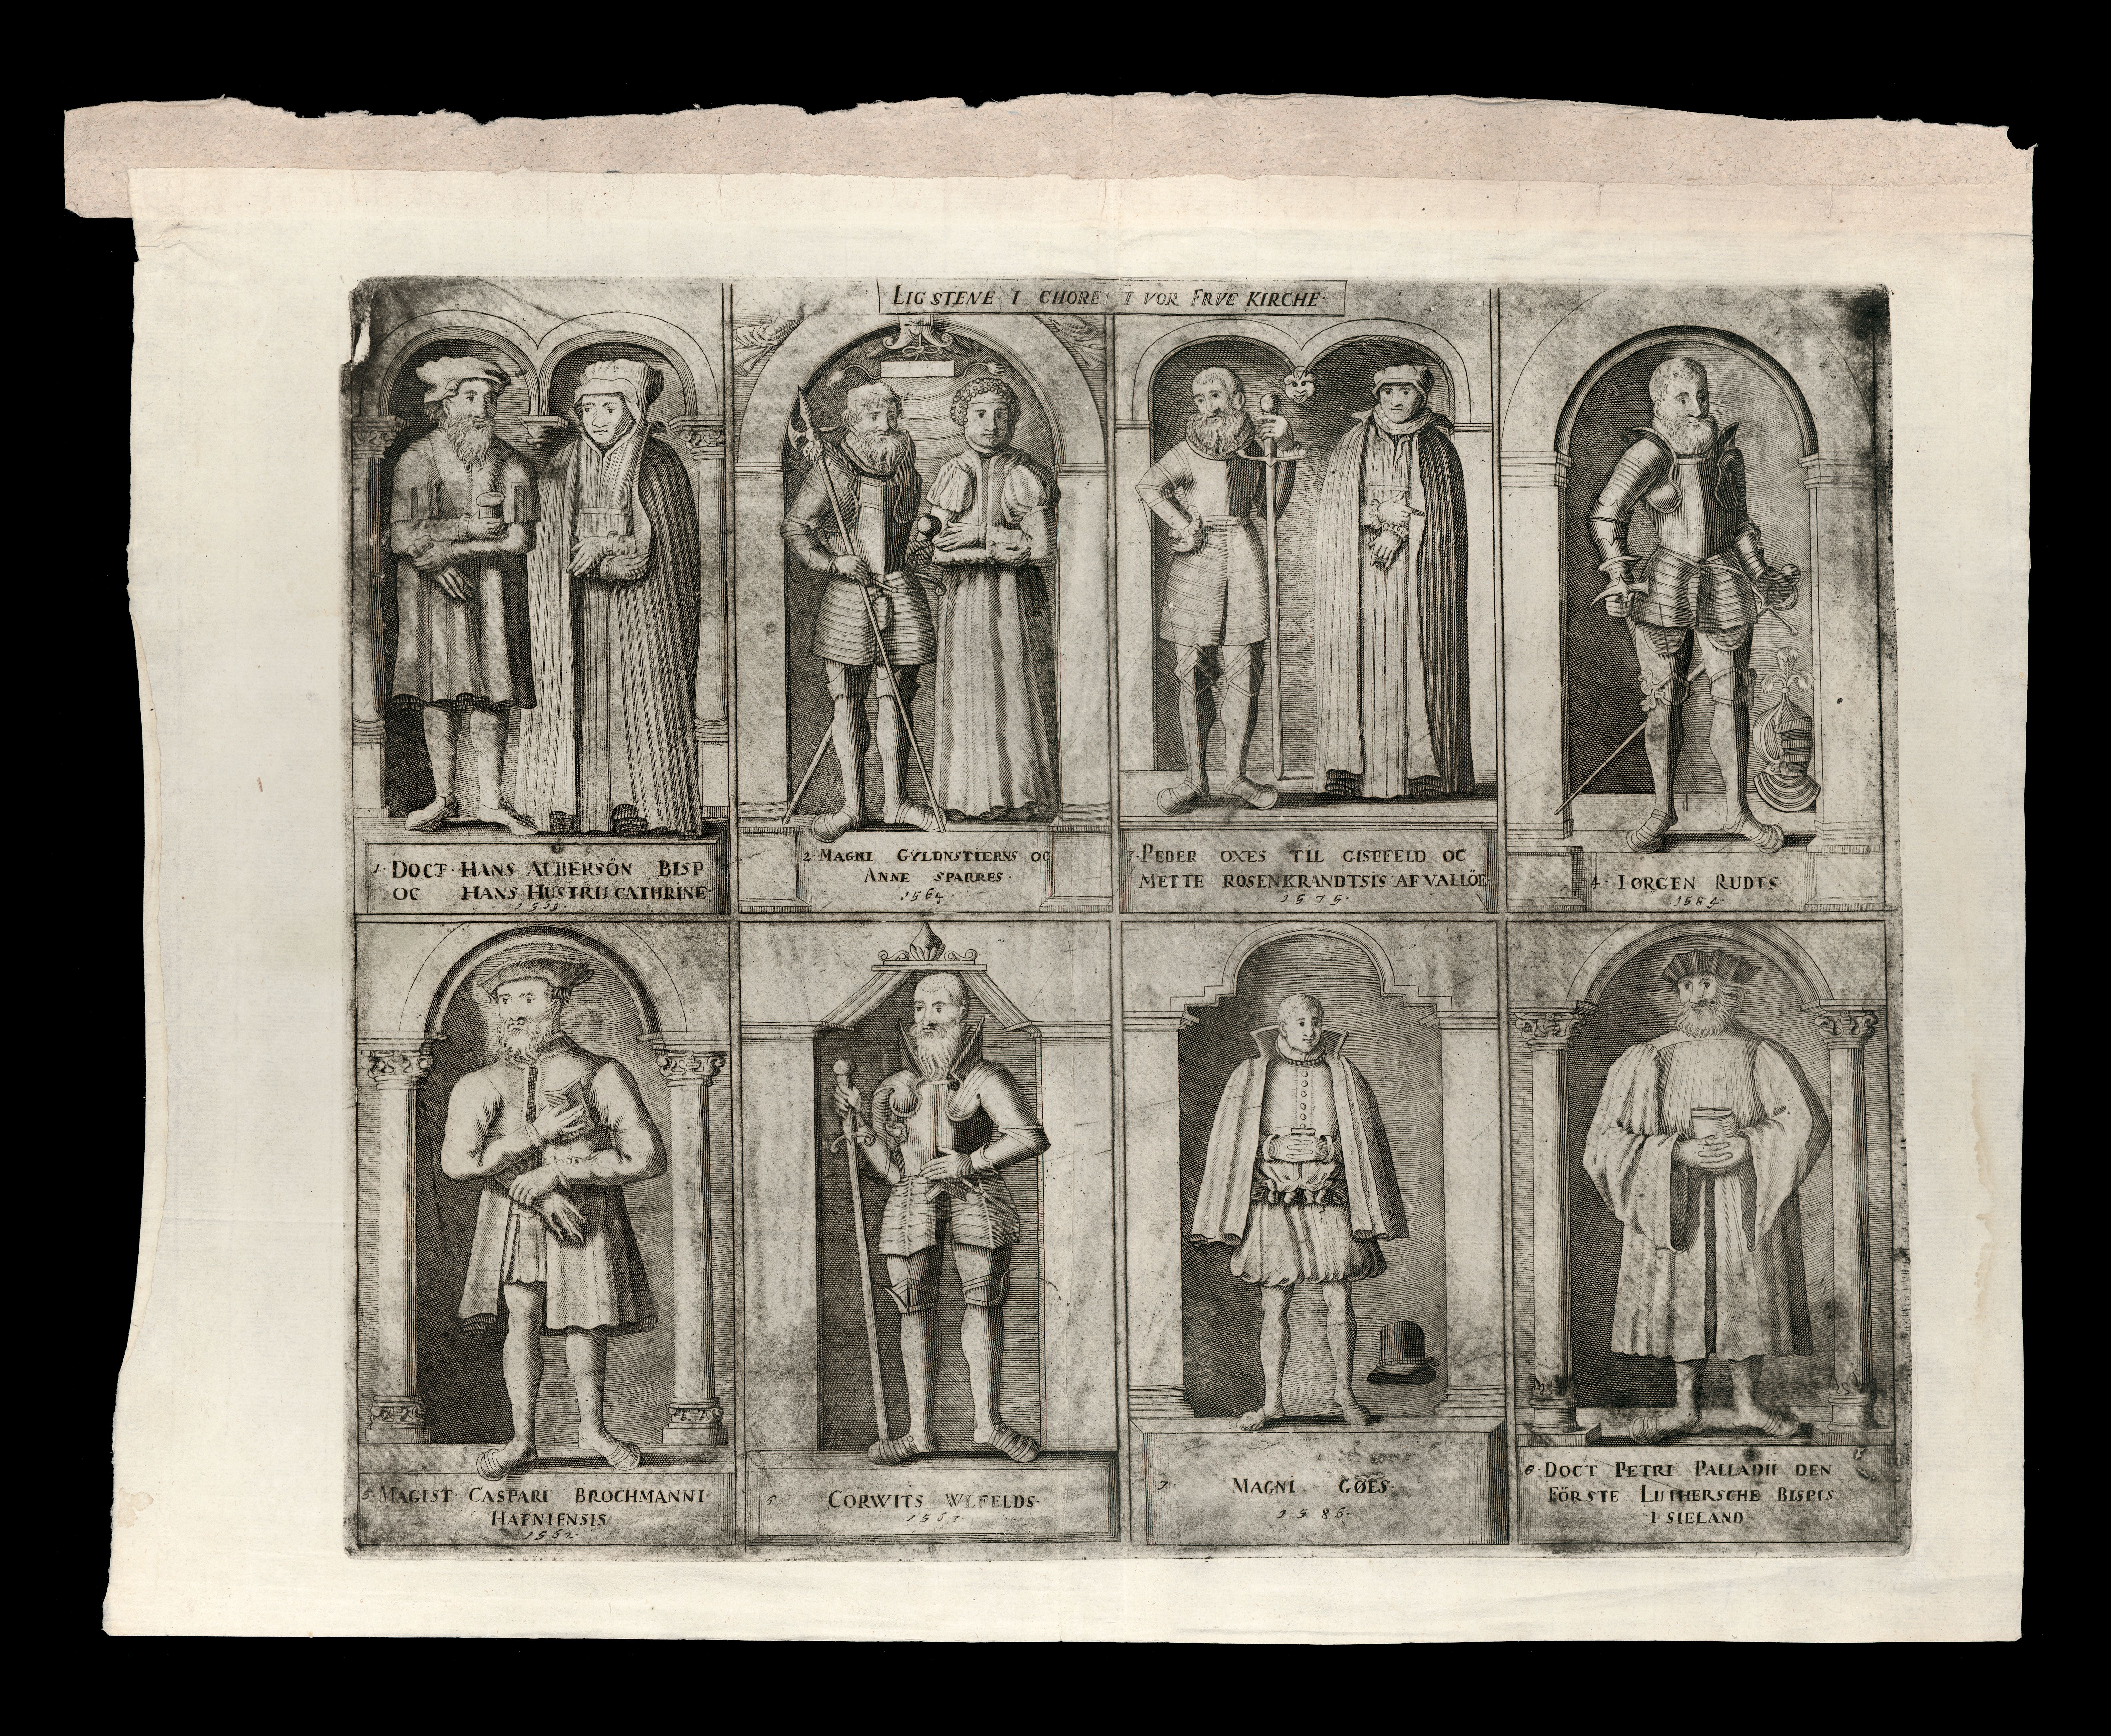 LIG STENE I CHORE I VOR FRVE KIRCHE·
1· DOCT· HANS ALBERSÖN BISP
OC HANS HUSTRU CATHRINE·
2· MAGNI GYLDNSTIERNS OC
ANNE SPARRES·
1564·
3· PEDER OXES TIL GISEFELD OC
METTE ROSENKRANDTSIS AF VALLÖE·
1575·
4· IØRGEN RUDTS
1584·
5· MAGIST· CASPARI BROCHMANNI·
HAFNIENSIS·
1562·
6· CORWITS WLFELDS·
7· MAGNI GØES·
1586·
8· DOCT PETRI PALLADII DEN
FÖRSTE LUTHERSCHE BISPIS
I SIELAND·